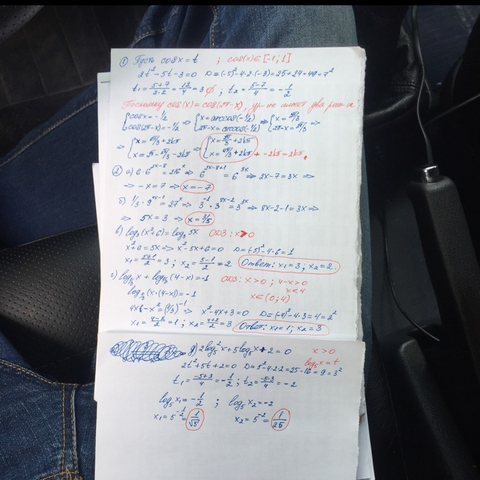 ① Пусть cos x = t ; cos(x) ∈ [-1; 1]
2t² - 5t - 3 = 0 D = (-5)² - 4·2·(-3) = 25 + 24 = 49 = 7²
t₁ = (5+7)/(2·2) = 12/4 = 3 ∅ ; t₂ = (5-7)/4 = -1/2
Поскольку cos(x) = cos(2π - x),
{cos x = -1/2 {cos(2π-x) = -1/2 ⇒ {x = arccos(-1/2) {2π-x = arccos(-1/2) ⇒ {x = 2π/3 {2π-x = 2π/3 ⇒
⇒ {x = 2π/3 + 2πk {x = 2π - 2π/3 - 2πk ⇒ {x = 2π/3 + 2πk {x = 4π/3 + 2πk
② а) 6^(5x-7+1) = 6^(3x) ⇒ 2x - 7 = 3x ⇒
⇒ -x = 7 ⇒ x = -7
б) 1/3 · 9^(4x-1) = 27^x ⇒ 3^-1 · 3^(8x-2) = 3^(3x) ⇒ 8x - 2 - 1 = 3x ⇒
⇒ 5x = 3 ⇒ x = 3/5
в) log₃(x²+6) = log₃ 5x ОДЗ: x > 0
x² + 6 = 5x ⇒ x² - 5x + 6 = 0 D = (-5)² - 4·6 = 1
x₁ = (5+1)/2 = 3 ; x₂ = (5-1)/2 = 2 Ответ: x₁ = 3 ; x₂ = 2
г) log₁/₃ x + log₁/₃ (4-x) = -1 ОДЗ: x > 0 ; 4-x > 0
x < 4
log₁/₃ (x·(4-x)) = -1 x ∈ (0; 4)
4x - x² = (1/3)^-1 ⇒ x² - 4x + 3 = 0 D = (-4)² - 4·3 = 4 = 2²
x₁ = (4-2)/2 = 1 ; x₂ = (4+2)/2 = 3 Ответ: x₁ = 1 ; x₂ = 3
д) 2log₅² x + 5log₅ x + 2 = 0 x > 0
log₅ x = t
2t² + 5t + 2 = 0 D = 5² - 4·2·2 = 25 - 16 = 9 = 3²
t₁ = (-5+3)/4 = -1/2 ; t₂ = (-5-3)/4 = -2
log₅ x₁ = -1/2 ; log₅ x₂ = -2
x₁ = 5^(-1/2) = 1/√5 x₂ = 5^-2 = 1/25